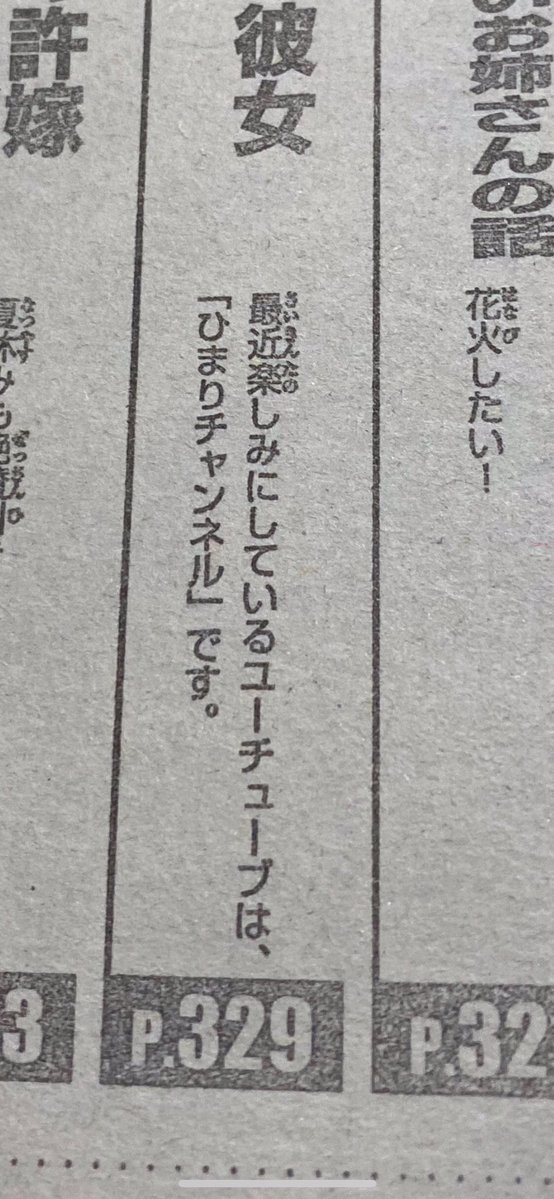 お姉さんの話
花火したい!
P.32
彼女
最近楽しみにしているユーチューブは、
「ひまりチャンネル」です。
P.329
許嫁
3